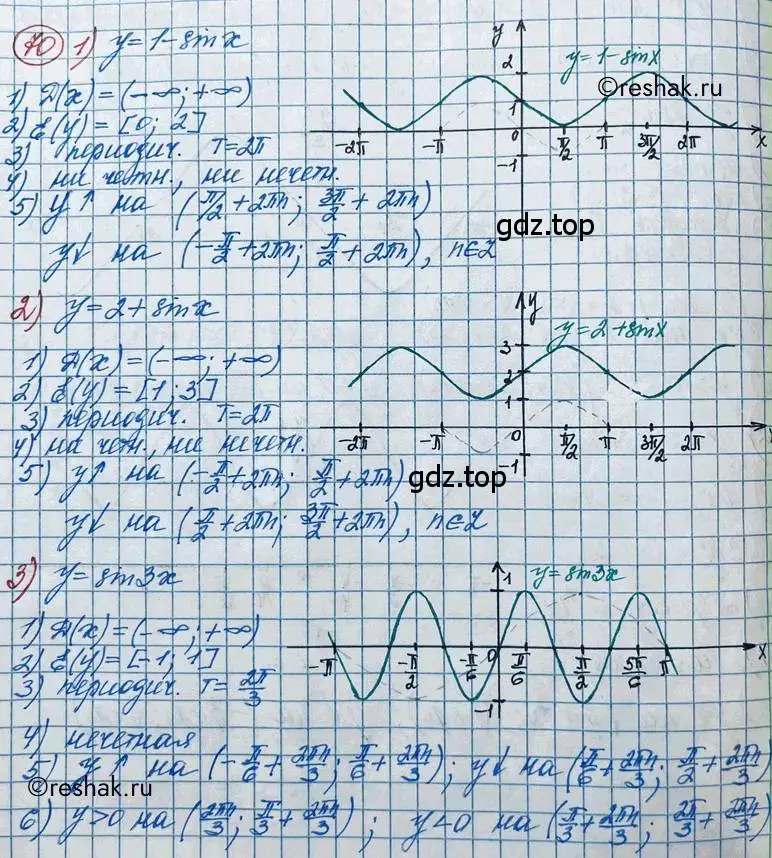 70 1) y=1-sinx
1) D(x)=(-∞;+∞)
2) E(y)=[0; 2]
3) периодич. T=2π
4) ни четн., ни нечетн.
5) y↑ на (π/2+2πn; 3π/2+2πn)
y↓ на (-π/2+2πn; π/2+2πn), n∈Z
y
2
1
0
-1
-2π -π π/2 π 3π/2 2π x
y=1-sinx
©reshak.ru
gdz.top
2) y=2+sinx
1) D(x)=(-∞;+∞)
2) E(y)=[1; 3]
3) периодич. T=2π
4) на четн., ни нечетн.
5) y↑ на (-π/2+2πn; π/2+2πn)
y↓ на (π/2+2πn; 3π/2+2πn), n∈Z
y
3
2
1
0
-1
-2π -π π/2 π 3π/2 2π
y=2+sinx
©reshak.ru
gdz.top
3) y=sin3x
1) D(x)=(-∞;+∞)
2) E(y)=[-1; 1]
3) периодич. T=2π/3
4) нечетная
5) y↑ на (-π/6+2πn/3; π/6+2πn/3); y↓ на (π/6+2πn/3; π/2+2πn/3)
6) y>0 на (2πn/3; π/3+2πn/3); y<0 на (π/3+2πn/3; 2π/3+2πn/3)
1
0
-1
-π -π/2 -π/6 π/6 π/2 5π/6 π x
y=sin3x